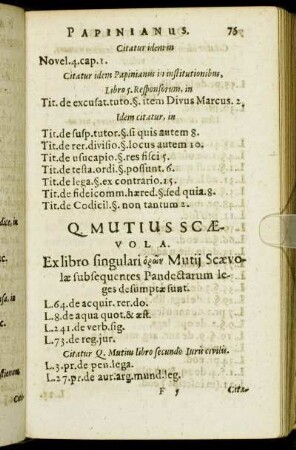 PAPINIANUS. 75
Citatur idem in
Novel.4.cap.1.
Citatur idem Papinianus in institutionibus,
Libro 5. Responsorum, in
Tit. de excusat. tuto.§. item Divus Marcus. 2,
Idem citatur, in
Tit. de susp. tutor.§. si quis autem 8.
Tit. de rer. divisio.§. locus autem 10.
Tit. de usucapio.§. res fisci 5.
Tit. de testa. ordi.§. possunt. 6.
Tit. de lega.§. ex contrario. 15.
Tit. de fideicomm. hæred.§. sed quia. 8.
Tit. de Codicil.§. non tantum 2.
Q. MUTIUS SCÆ-
VOLA.
Ex libro singulari ὁρῶν Mutij Scævo-
læ subsequentes Pandectarum le-
ges desumptæ sunt.
L.64. de acquir. rer. do.
L.8. de aqua quot. & æst.
L.241. de verb. sig.
L.73. de reg. jur.
Citatur Q. Mutius libro secundo Iuris civilis.
L.3. pr. de pen. lega.
L.27. pr. de aur. arg. mund. leg.
F 5 Cita-